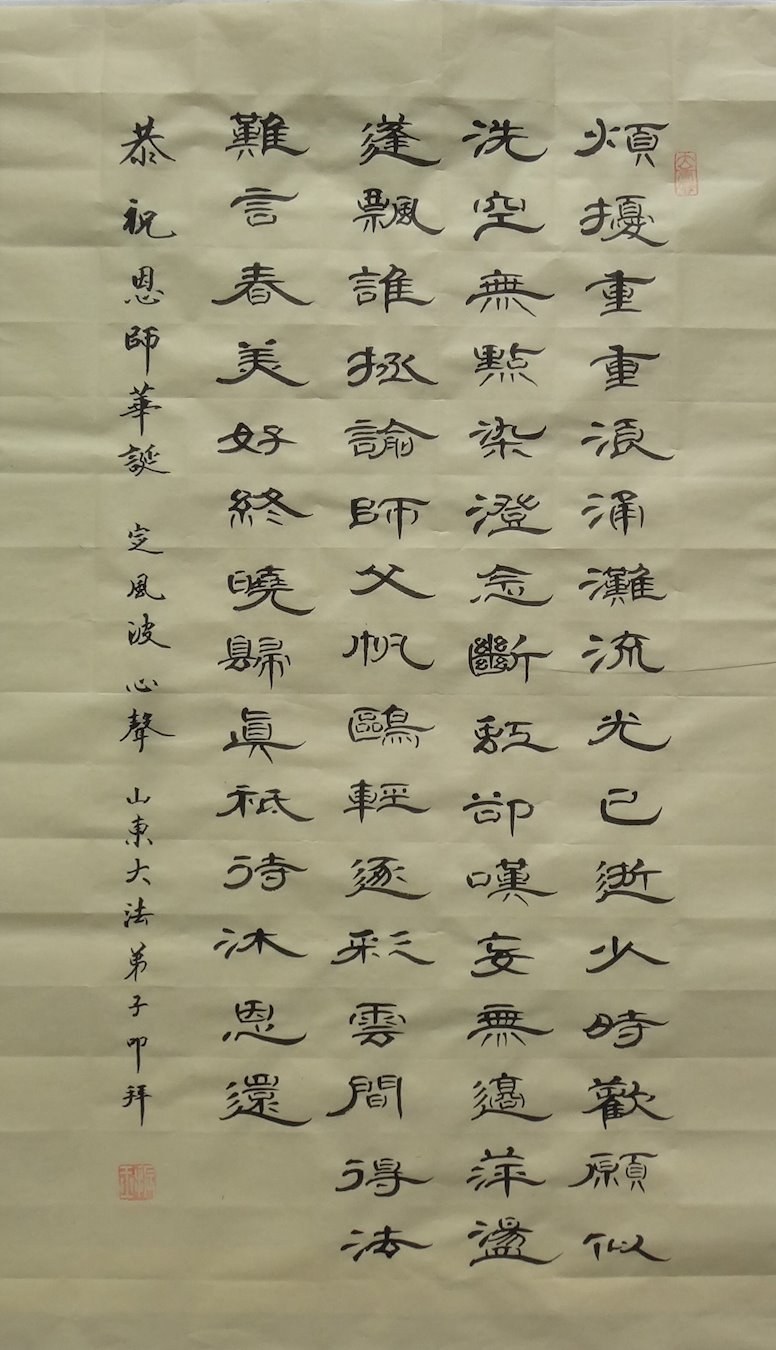 煩擾重重浪涌灘流光已逝少時歡願似
洗空無點染澄念斷紅卻嘆妄無邊萍盪
蓬飄誰拯諭師父帆鷗輕逐彩雲間得法
難言春美好終曉歸真祇待沐恩還
恭祝恩師華誕 定風波心聲 山東大法弟子叩拜